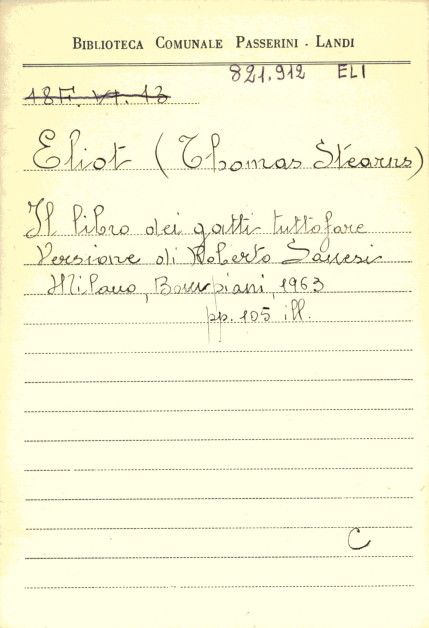 BIBLIOTECA COMUNALE PASSERINI - LANDI
821.912 ELI
18F. VI. 13
Eliot (Thomas Stearns)
Il libro dei gatti tuttofare
Versione di Roberto Sanesi
Milano, Bompiani, 1963
pp. 105 ill.
C